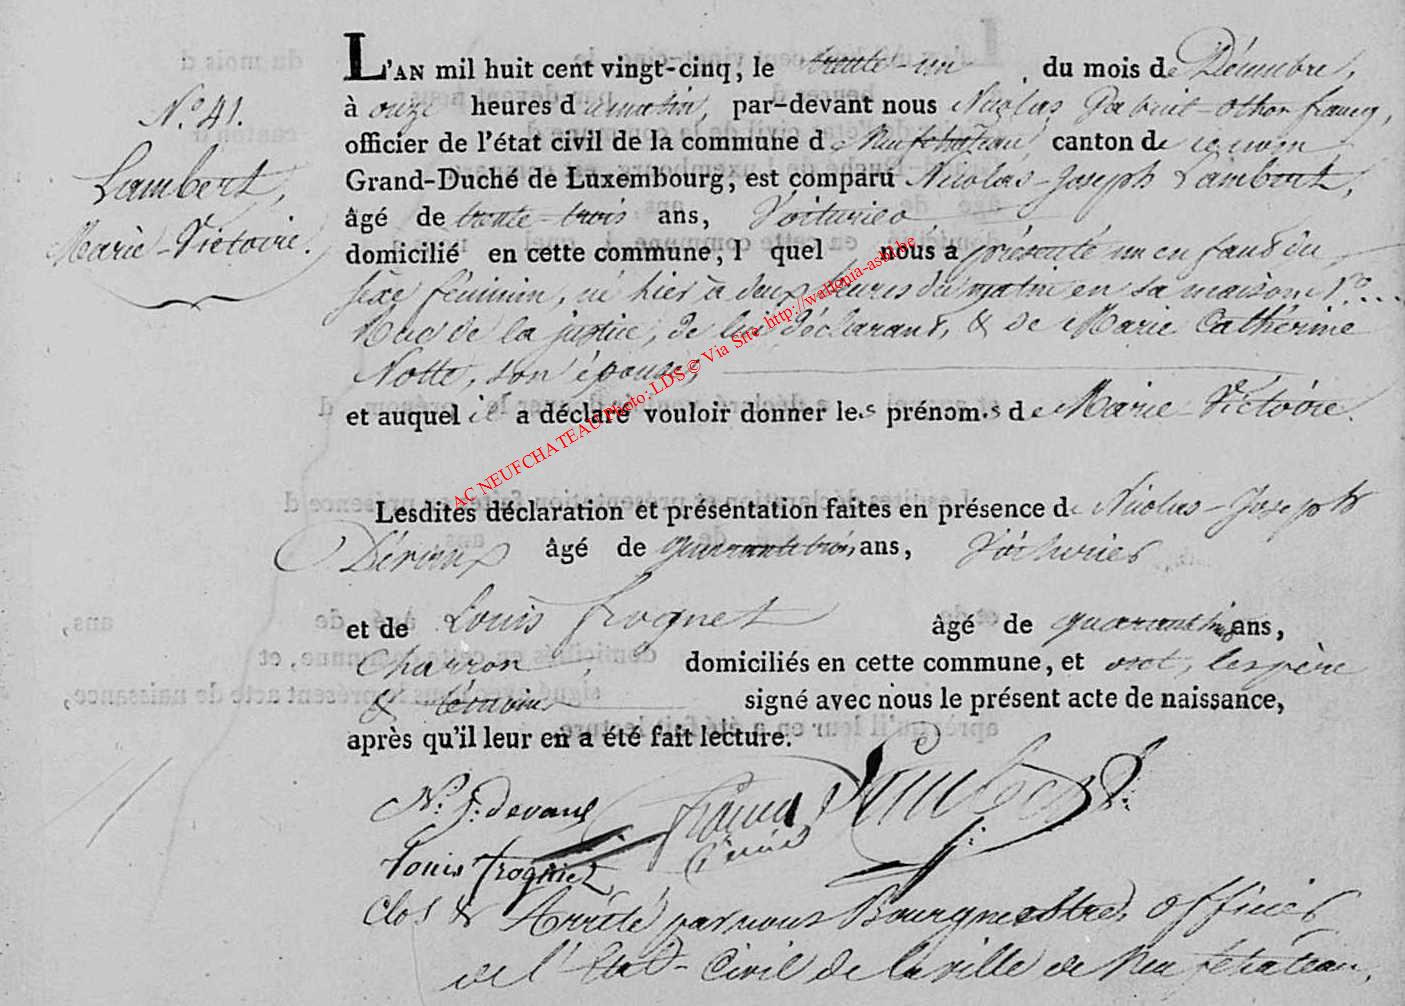 L'AN mil huit cent vingt-cinq, le trente-un, du mois de Décembre,
N.° 41.
à onze heures du matin, par-devant nous Nicolas Gabriel-Othon francq,
officier de l'état civil de la commune de Neufchateau canton de ce nom
Lambert,
Marie-Victoire.
Grand-Duché de Luxembourg, est comparu Nicolas-Joseph Lambert,
âgé de trente-trois ans, Voiturier
domicilié en cette commune, l quel nous a présenté un enfant du
sexe féminin, né hier à deux heures du matin en sa maison N.°...
Rue de la justice, de lui déclarant, & de Marie Catherine
Notte, son épouse,
et auquel il a déclaré vouloir donner les prénoms de Marie-Victoire.
AC NEUFCHATEAU Photo: LDS © Via Site http://wallonia-asbl.be
Lesdites déclaration et présentation faites en présence de Nicolas-Joseph
âgé de quarante trois ans, Voiturier
et de Louis frognet âgé de quarante cinq ans,
Charron, domiciliés en cette commune, et ont, les père
& témoins signé avec nous le présent acte de naissance,
après qu'il leur en a été fait lecture.
N. J. devaux Lambert
Louis frognet
Clos & Arrêté par nous Bourgmestre, officier
de l'Etat-Civil de la ville de Neufchateau,